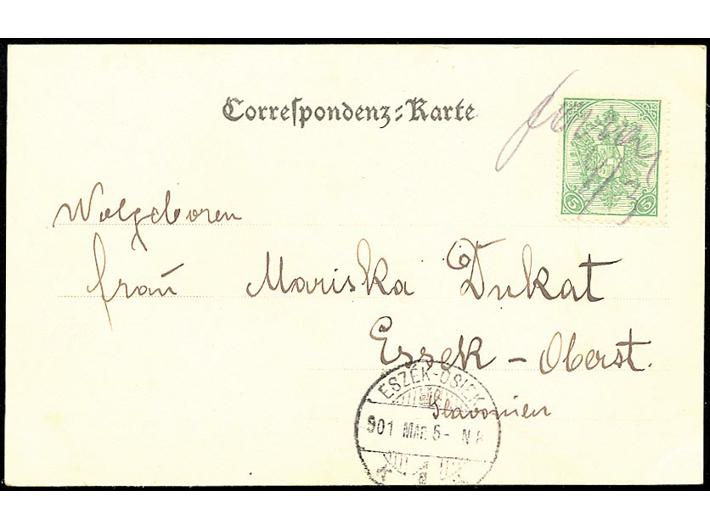 Correspondenz-Karte
5 5
Wolgeboren
frau Mariska Dukat
Essek - Oberst.
Slavonien
ESZÉK-OSIEK
901 MAR. 5- N